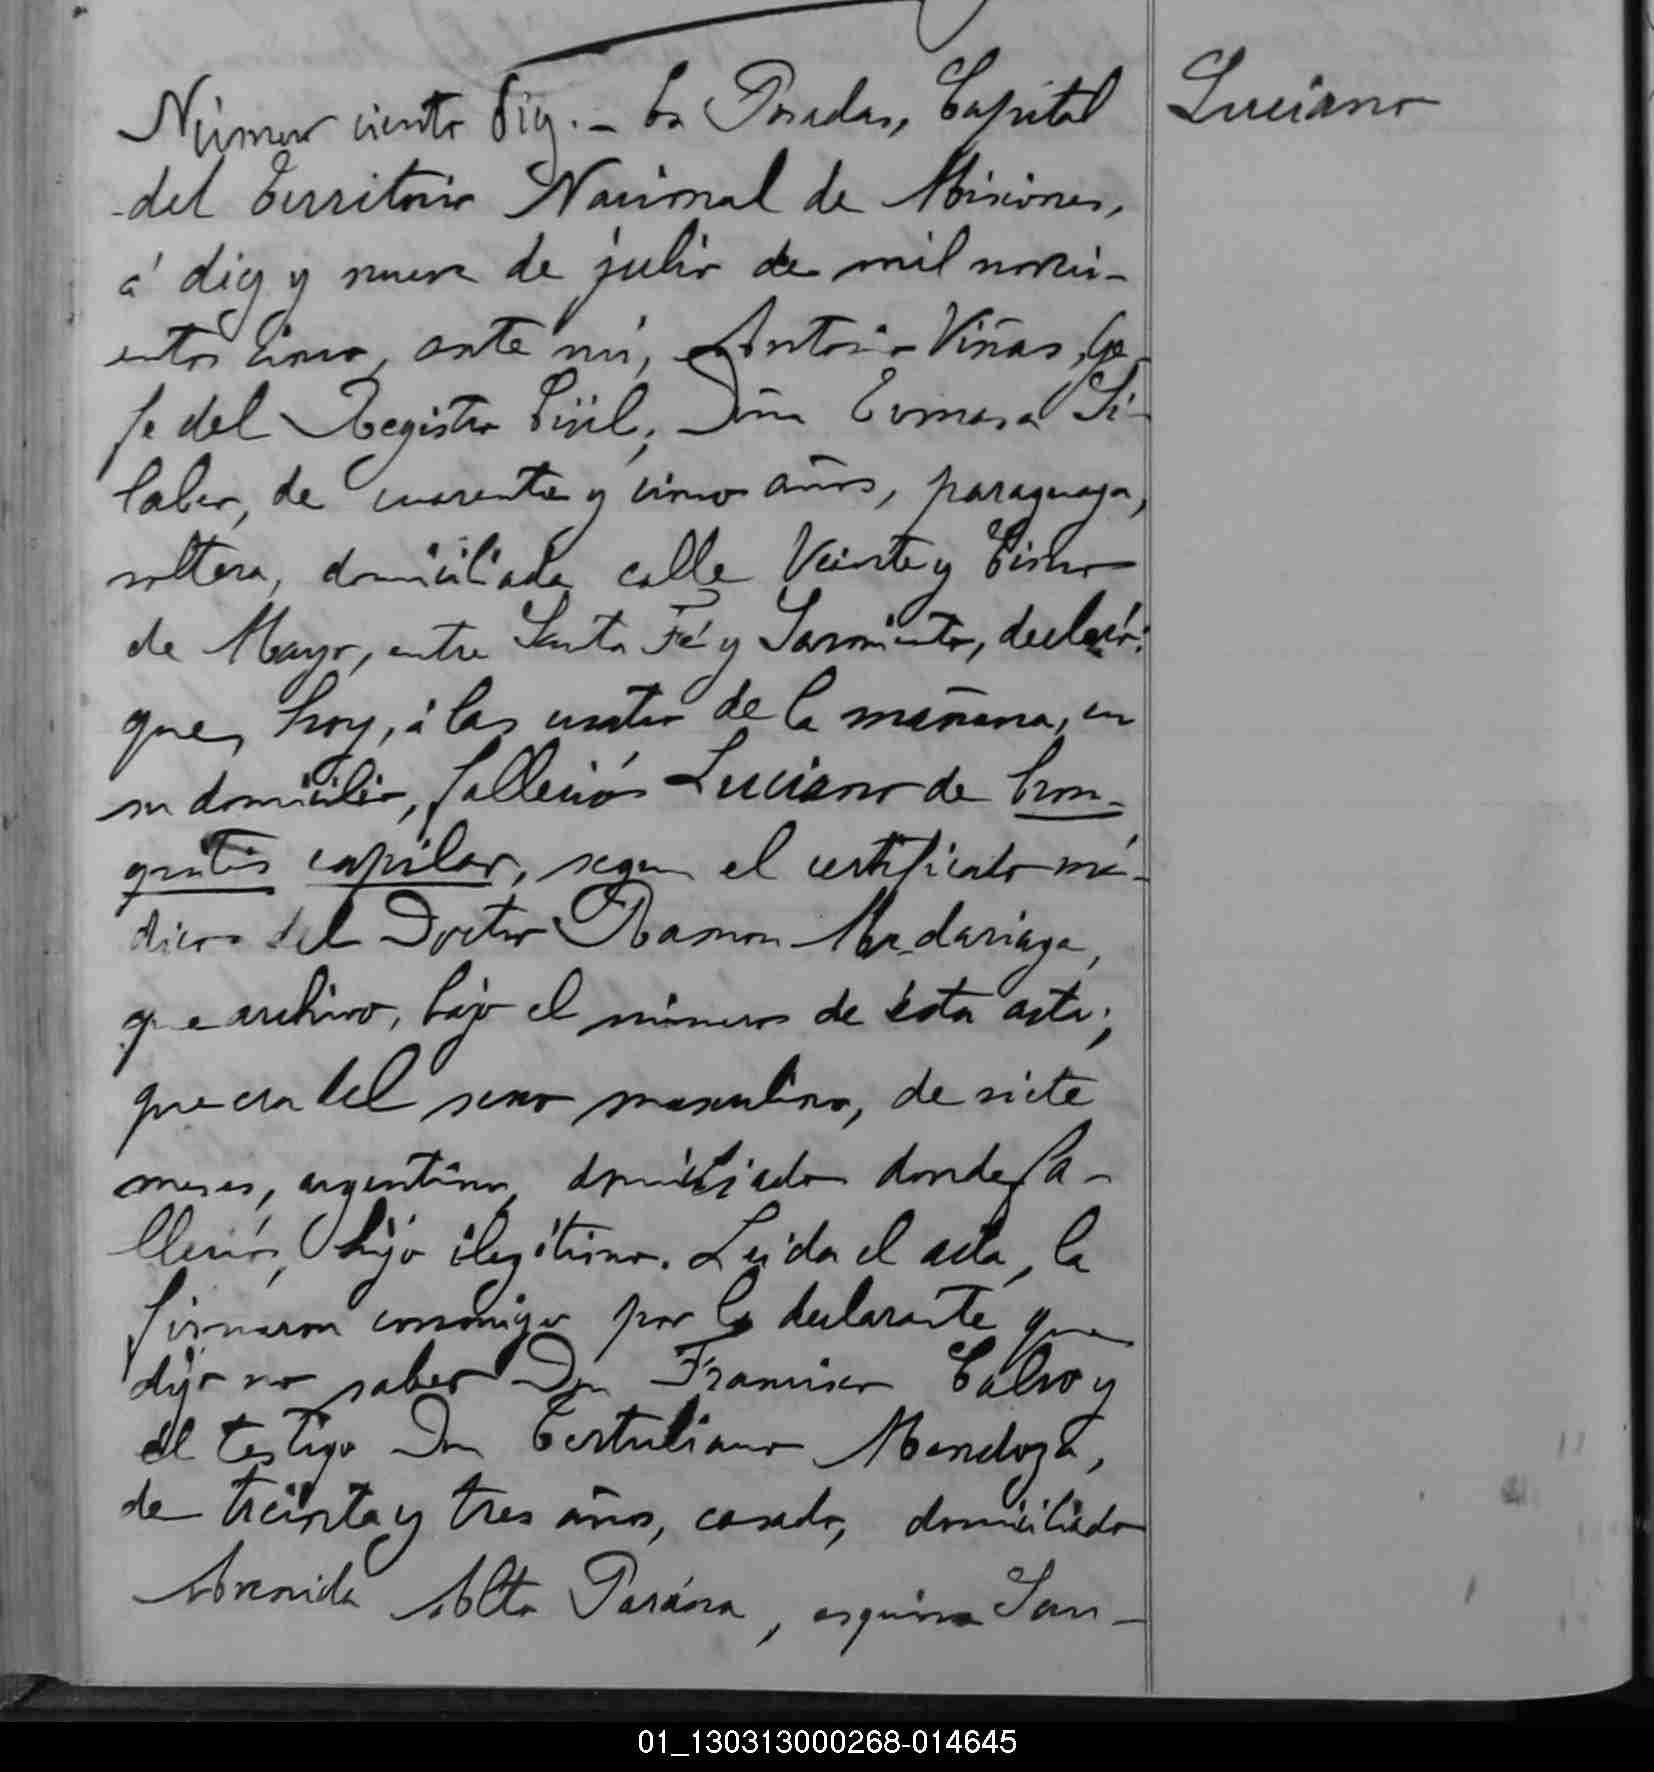 Número ciento diez.- En Posadas, Capital
Luciano
del Territorio Nacional de Misiones,
á diez y nueve de julio de mil novesi-
entos cinco, ante mí, Antonio Viñas, Ge-
fe del Registro Civil, Doña Tomasa
de cuarenta y cinco años, paraguaya,
soltera, domiciliada calle Veinte y Cinco
de Mayo, entre Santa Fé y Sarmiento, declaró:
que, hoy, á las cuatro de la mañana, en
su domicilio, falleció Luciano de bron-
quitis capilar, segun el certificado mé-
dico del Doctor Ramon Madariaga,
que archivo, bajo el número de ésta acta;
que era del sexo masculino, de siete
meses, argentino, domiciliado donde fa-
lleció, hijo ilegítimo. Leida el acta, la
firmaron conmigo por la declarante que
dijo no saber Don Francisco Calvo y
el testigo Don Tertuliano Mendoza,
de treinta y tres años, casado, domiciliado
Avenida Alto Parána, esquina San-
01_130313000268-014645